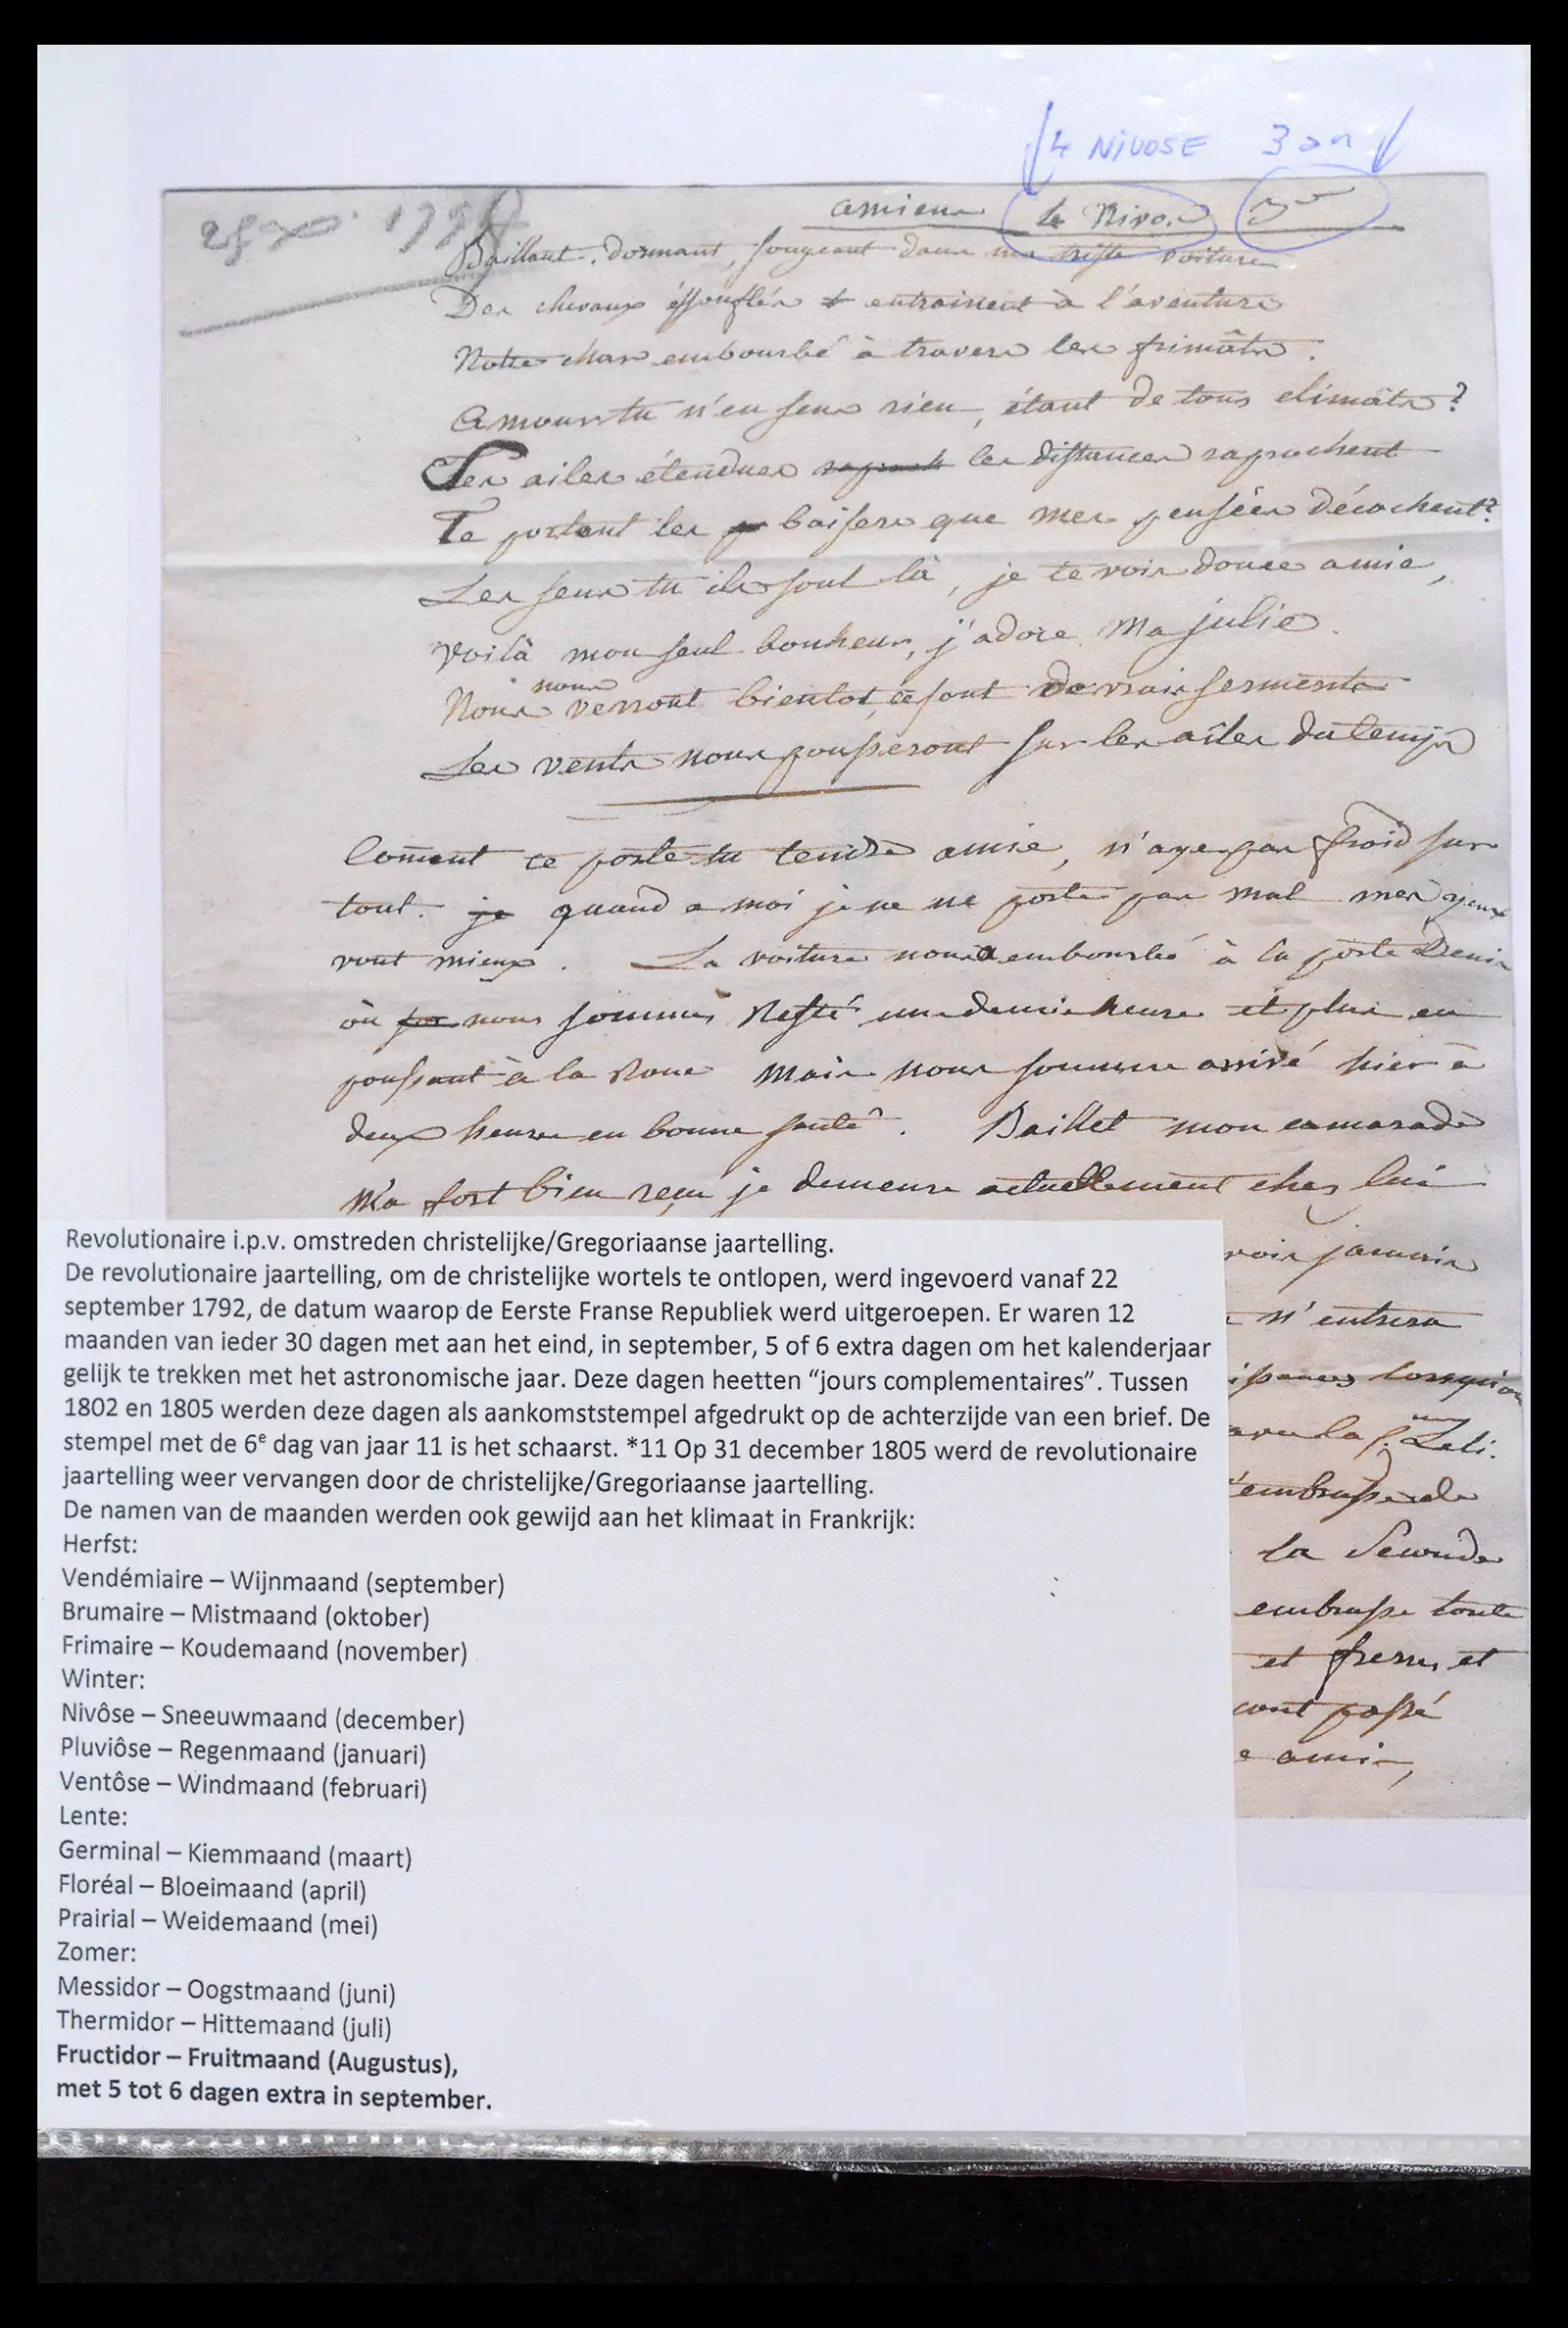 4 NIVOSE 3 an
amiens 4 Nivo. 3
Baillant, dormant, songeant dans ma triste voiture
Des chevaux éssouflés entrainent à l'aventure
Notre char embourbé à travers les frimâts.
Amour tu n'en sens rien, étant de tous climâts?
Tes ailes étendues les distances raprochent
Te portent les baisers que mes pensées décochent?
Les sens tu ils sont là, je te vois douce amie,
Voilà mon seul bonheur, j'adore Ma julie.
Nous nous verront bientot, ce sont de vrais serments
Les vents nous pousseront sur les aîles du temps
Coment te porte tu tendre amie, n'aye pas froid sur
tout. je quand a moi je ne me porte pas mal mes yeux
vont mieux. La voiture nous a embourbé à la porte Denis
où nous sommes Resté une demie heure et plus en
poussant à la Roue Mais nous sommes arrivé hier a
deux heures en bonne santé. Baillet mon camarade
M'a fort bien reçu je demeure actuellement chez lui
Revolutionaire i.p.v. omstreden christelijke/Gregoriaanse jaartelling.
De revolutionaire jaartelling, om de christelijke wortels te ontlopen, werd ingevoerd vanaf 22
september 1792, de datum waarop de Eerste Franse Republiek werd uitgeroepen. Er waren 12
maanden van ieder 30 dagen met aan het eind, in september, 5 of 6 extra dagen om het kalenderjaar
gelijk te trekken met het astronomische jaar. Deze dagen heetten “jours complementaires”. Tussen
1802 en 1805 werden deze dagen als aankomststempel afgedrukt op de achterzijde van een brief. De
stempel met de 6e dag van jaar 11 is het schaarst. *11 Op 31 december 1805 werd de revolutionaire
jaartelling weer vervangen door de christelijke/Gregoriaanse jaartelling.
De namen van de maanden werden ook gewijd aan het klimaat in Frankrijk:
Herfst:
Vendémiaire – Wijnmaand (september)
Brumaire – Mistmaand (oktober)
Frimaire – Koudemaand (november)
Winter:
Nivôse – Sneeuwmaand (december)
Pluviôse – Regenmaand (januari)
Ventôse – Windmaand (februari)
Lente:
Germinal – Kiemmaand (maart)
Floréal – Bloeimaand (april)
Prairial – Weidemaand (mei)
Zomer:
Messidor – Oogstmaand (juni)
Thermidor – Hittemaand (juli)
Fructidor – Fruitmaand (Augustus),
met 5 tot 6 dagen extra in september.
voir jamais
n'entrera
embrasse de
la Seconde
embrasse toute
et freres et
passé
ami,